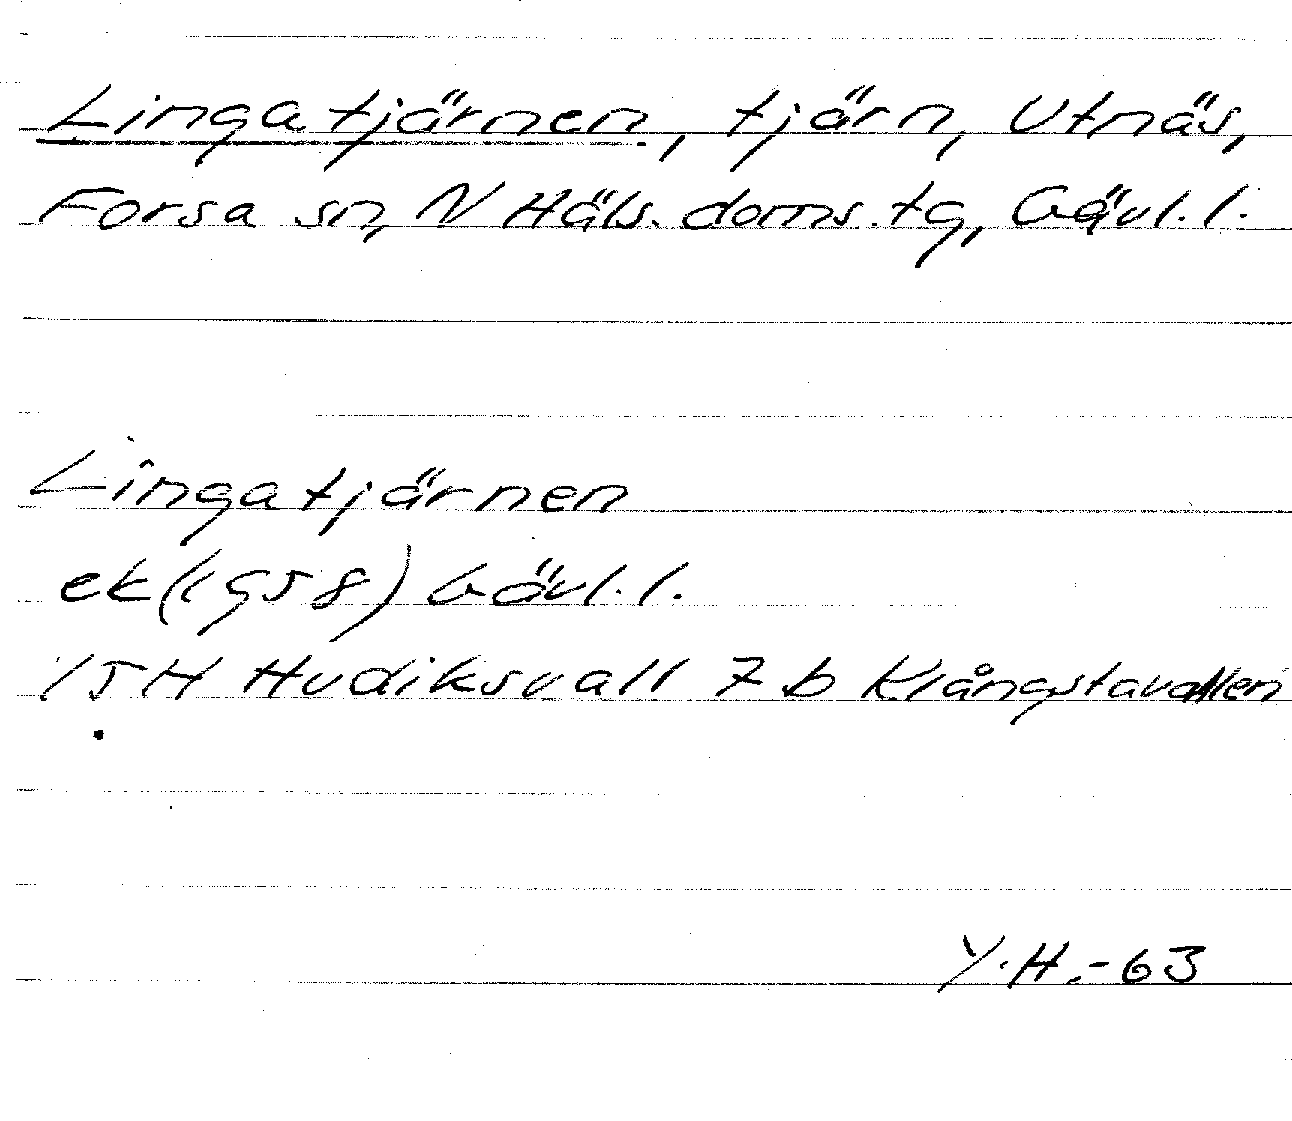 Lingatjärnen, tjärn, Utnäs,
Forsa sn, N Häls. doms.tg, Gävl.l.
Lingatjärnen
ek(1958) Gävl.l.
15H Hudiksvall 7 b Klångstavallen
Y.H.-63